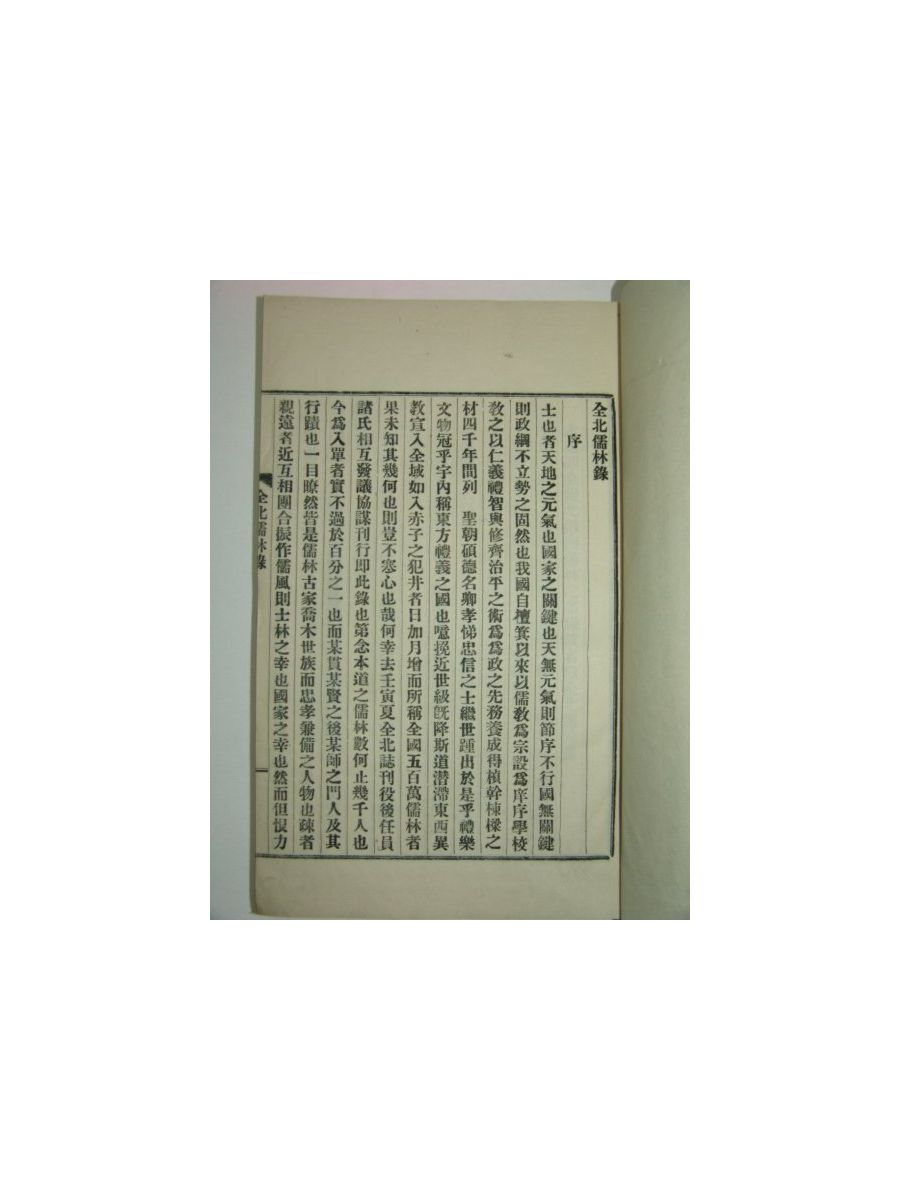 全北儒林錄
序
士也者天地之元氣也國家之關鍵也天無元氣則節序不行國無關鍵
則政綱不立勢之固然也我國自檀箕以來以儒教爲宗設爲庠序學校
敎之以仁義禮智與修齊治平之術爲爲政之先務養成得楨幹棟樑之
材四千年間列 聖朝碩德名卿孝悌忠信之士繼世踵出於是乎禮樂
文物冠乎宇內稱東方禮義之國也噫挽近世級旣降斯道潜滯東西異
教宣入全域如入赤子之犯井者日加月增而所稱全國五百萬儒林者
果未知其幾何也則豈不寒心也哉何幸去壬寅夏全北誌刊役後任員
諸氏相互發議協謀刊行即此錄也第念本道之儒林數何止幾千人也
今爲入單者實不過於百分之一也而某貫某賢之後某師之門人及其
行蹟也一目瞭然皆是儒林古家喬木世族而忠孝兼備之人物也疎者
親遠者近互相團合振作儒風則士林之幸也國家之幸也然而但恨力
全北儒林錄